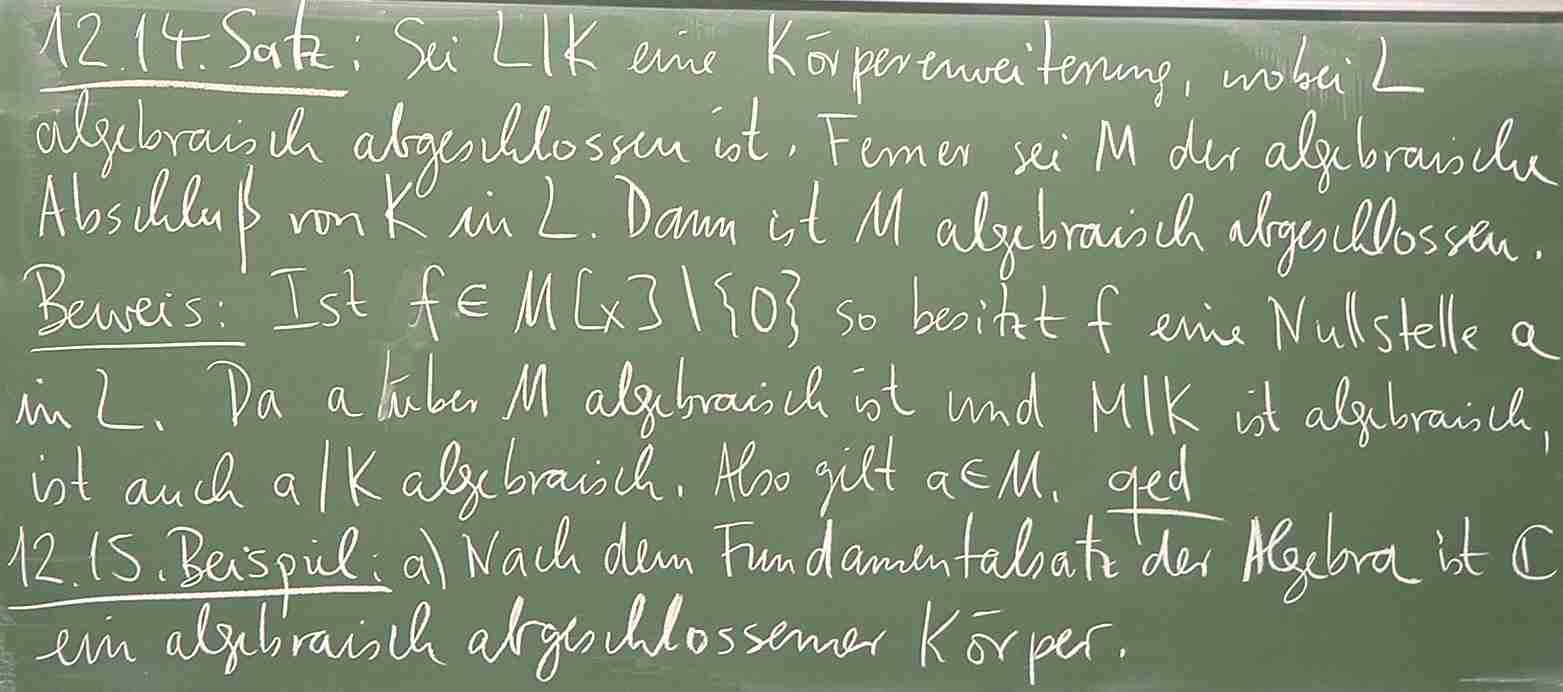 12.14. Satz: Sei L|K eine Körpererweiterung, wobei L
algebraisch abgeschlossen ist. Ferner sei M der algebraische
Abschluß von K in L. Dann ist M algebraisch abgeschlossen.
Beweis: Ist f ∈ M[x] \ {0} so besitzt f eine Nullstelle a
in L. Da a über M algebraisch ist und M|K ist algebraisch,
ist auch a|K algebraisch. Also gilt a ∈ M. qed
12.15. Beispiel: a) Nach dem Fundamentalsatz der Algebra ist ℂ
ein algebraisch abgeschlossener Körper.